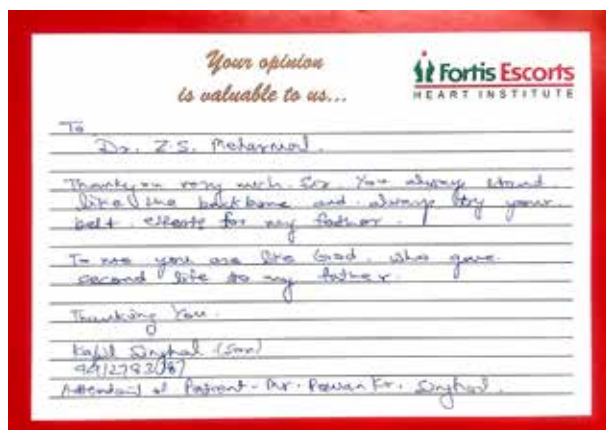 Your opinion
is valuable to us...
Fortis Escorts
HEART INSTITUTE
To
Dr. Z.S. Meharwal.
Thankyou very much Sir. You always stand
like the backbone and always try your
belt efforts for my father.
To me you are like God. who gave
second life to my father.
Thanking You.
Kapil Singhal (Son)
Attendant of Patient - Mr. Pawan Kr. Singhal.